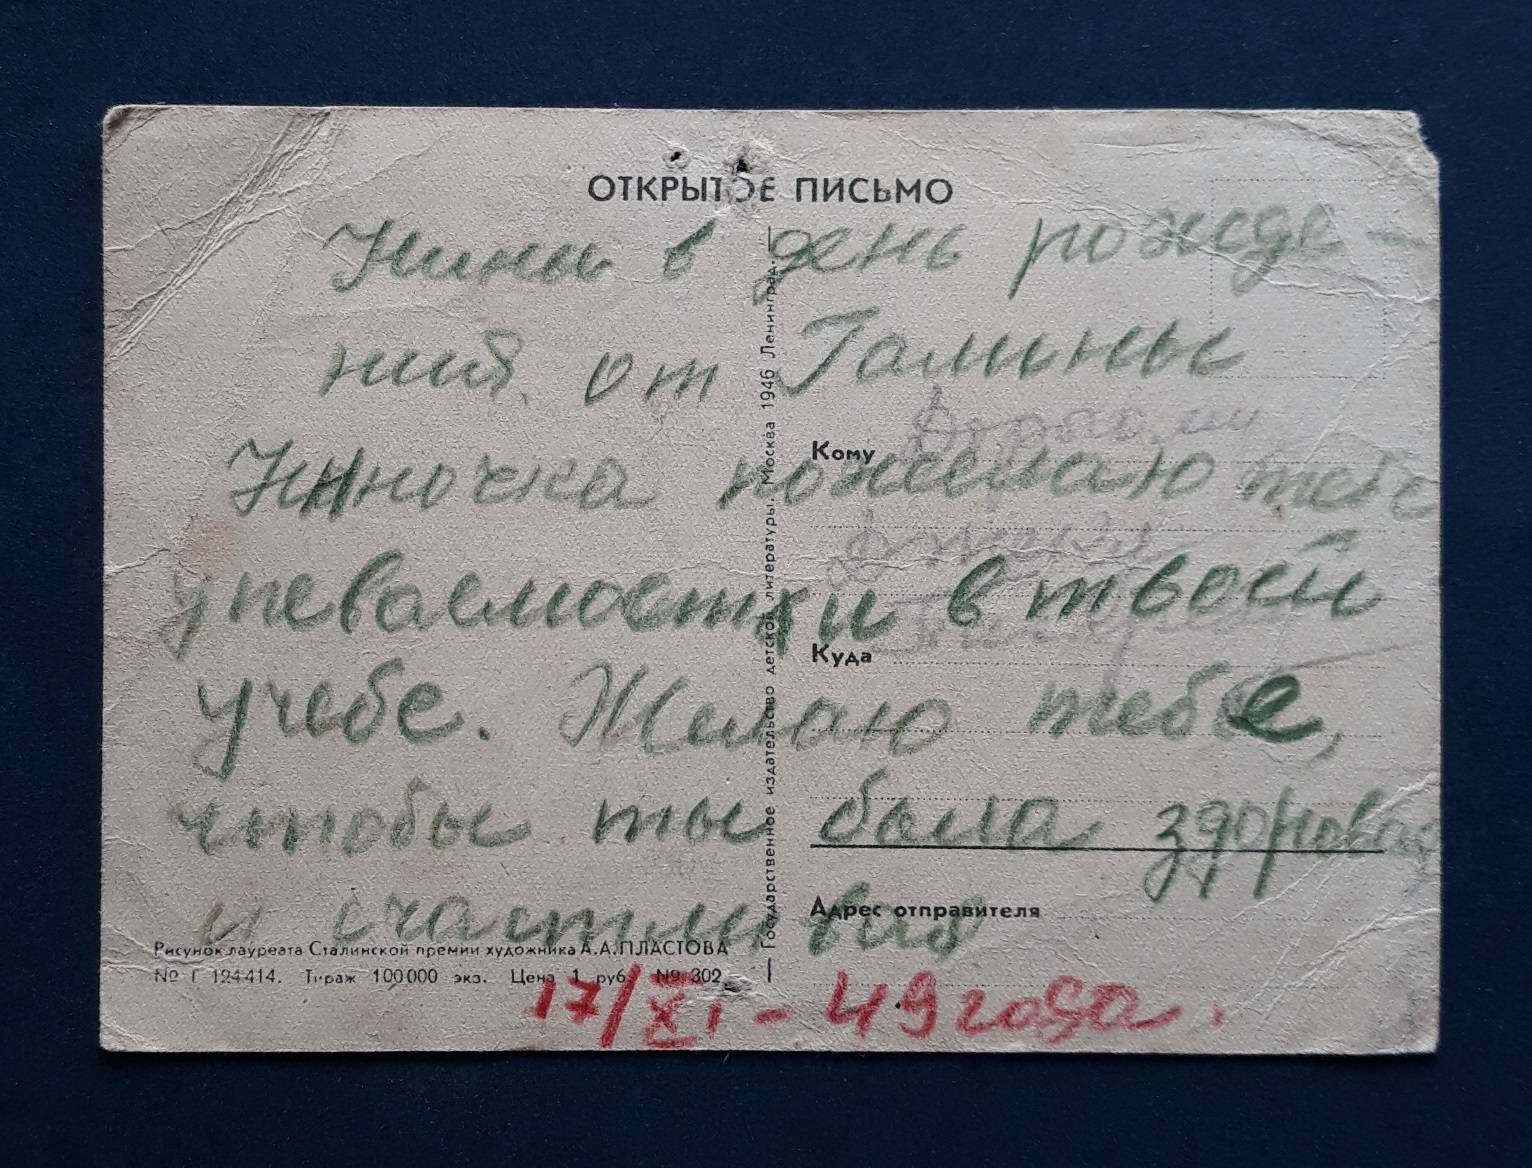 ОТКРЫТОЕ ПИСЬМО
Нины в день рожде-
ния. от Галины
Ниночка пожелаю тебе
упеваемости в твоей
учебе. Желаю тебе,
чтобы ты была здоровая
и счастливая
17/XI - 49 года.
Кому
Куда
Адрес отправителя
Рисунок лауреата Сталинской премии художника А.А.ПЛАСТОВА
№ Г 124414. Тираж 100000 экз. Цена 1 руб. № 302
— Государственное издательство детской литературы. Москва 1946 Ленинград. —